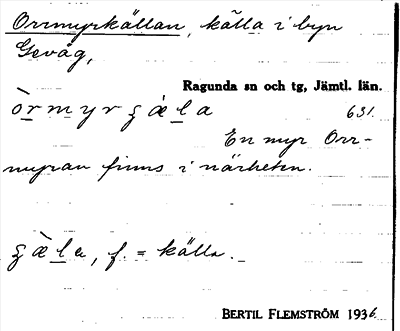 Orrmyrkällan, källa i byn
Gevåg,
Ragunda sn och tg, Jämtl. län.
òrmyrʒæla 631.
En myr Orr-
myran finns i närheten.
ʒæ̀la, f. = källa.
BERTIL FLEMSTRÖM 1936.